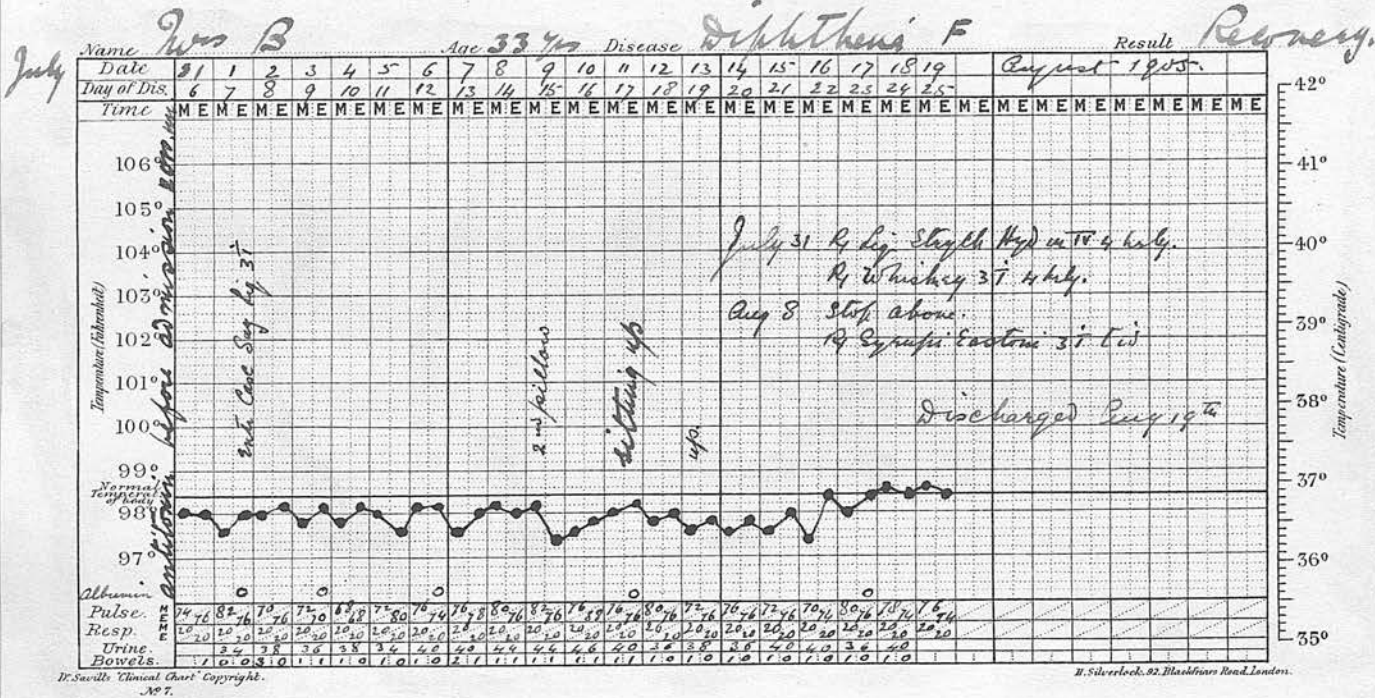 Name Mrs B Age 33 yrs Disease Diphtheria F Result Recovery.
July
Date 31 1 2 3 4 5 6 7 8 9 10 11 12 13 14 15 16 17 18 19 August 1905.
Day of Dis. 6 7 8 9 10 11 12 13 14 15 16 17 18 19 20 21 22 23 24 25
Time M E M E M E M E M E M E M E M E M E M E M E M E M E M E M E M E M E M E M E M E M E M E M E M E M E M E M E M E
Temperature (Fahrenheit)
106°
105°
104°
103°
102°
101°
100°
99°
Normal Temperat. of body
98°
97°
42°
41°
40°
39°
38°
37°
36°
35°
Temperature (Centigrade)
antitoxin before admission
2nd pillow
sitting up
up.
July 31 ℞ Liq. Strych Hyd m IV 4 hrly.
℞ Whiskey 3 i 4 hrly.
Aug 8 Stop above.
℞ Syrupi Eastoni 3 i t i d
Discharged Aug 19th
Albumin o o o o
Pulse. M E 74 76 82 76 70 76 72 70 68 68 72 80 76 74 76 78 80 76 82 76 76 76 76 80 76 72 76 76 76 72 76 70 74 80 76 78 74 76 74
Resp. M E 20 20 20 20 20 20 20 20 20 20 20 20 20 20 20 20 20 20 20 20 20 20 20 20 20 20 20 20 20 20 20 20 20 20 20 20 20 20 20 20
Urine. 34 38 36 38 34 40 40 44 44 46 40 36 38 36 40 40 36 40
Bowels.
Dr. Savill's "Clinical Chart" Copyright.
No 7.
H. Silverlock, 92, Blackfriars Road, London.